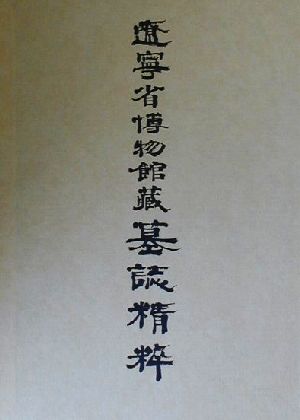 遼寧省博物館藏墓誌精粹